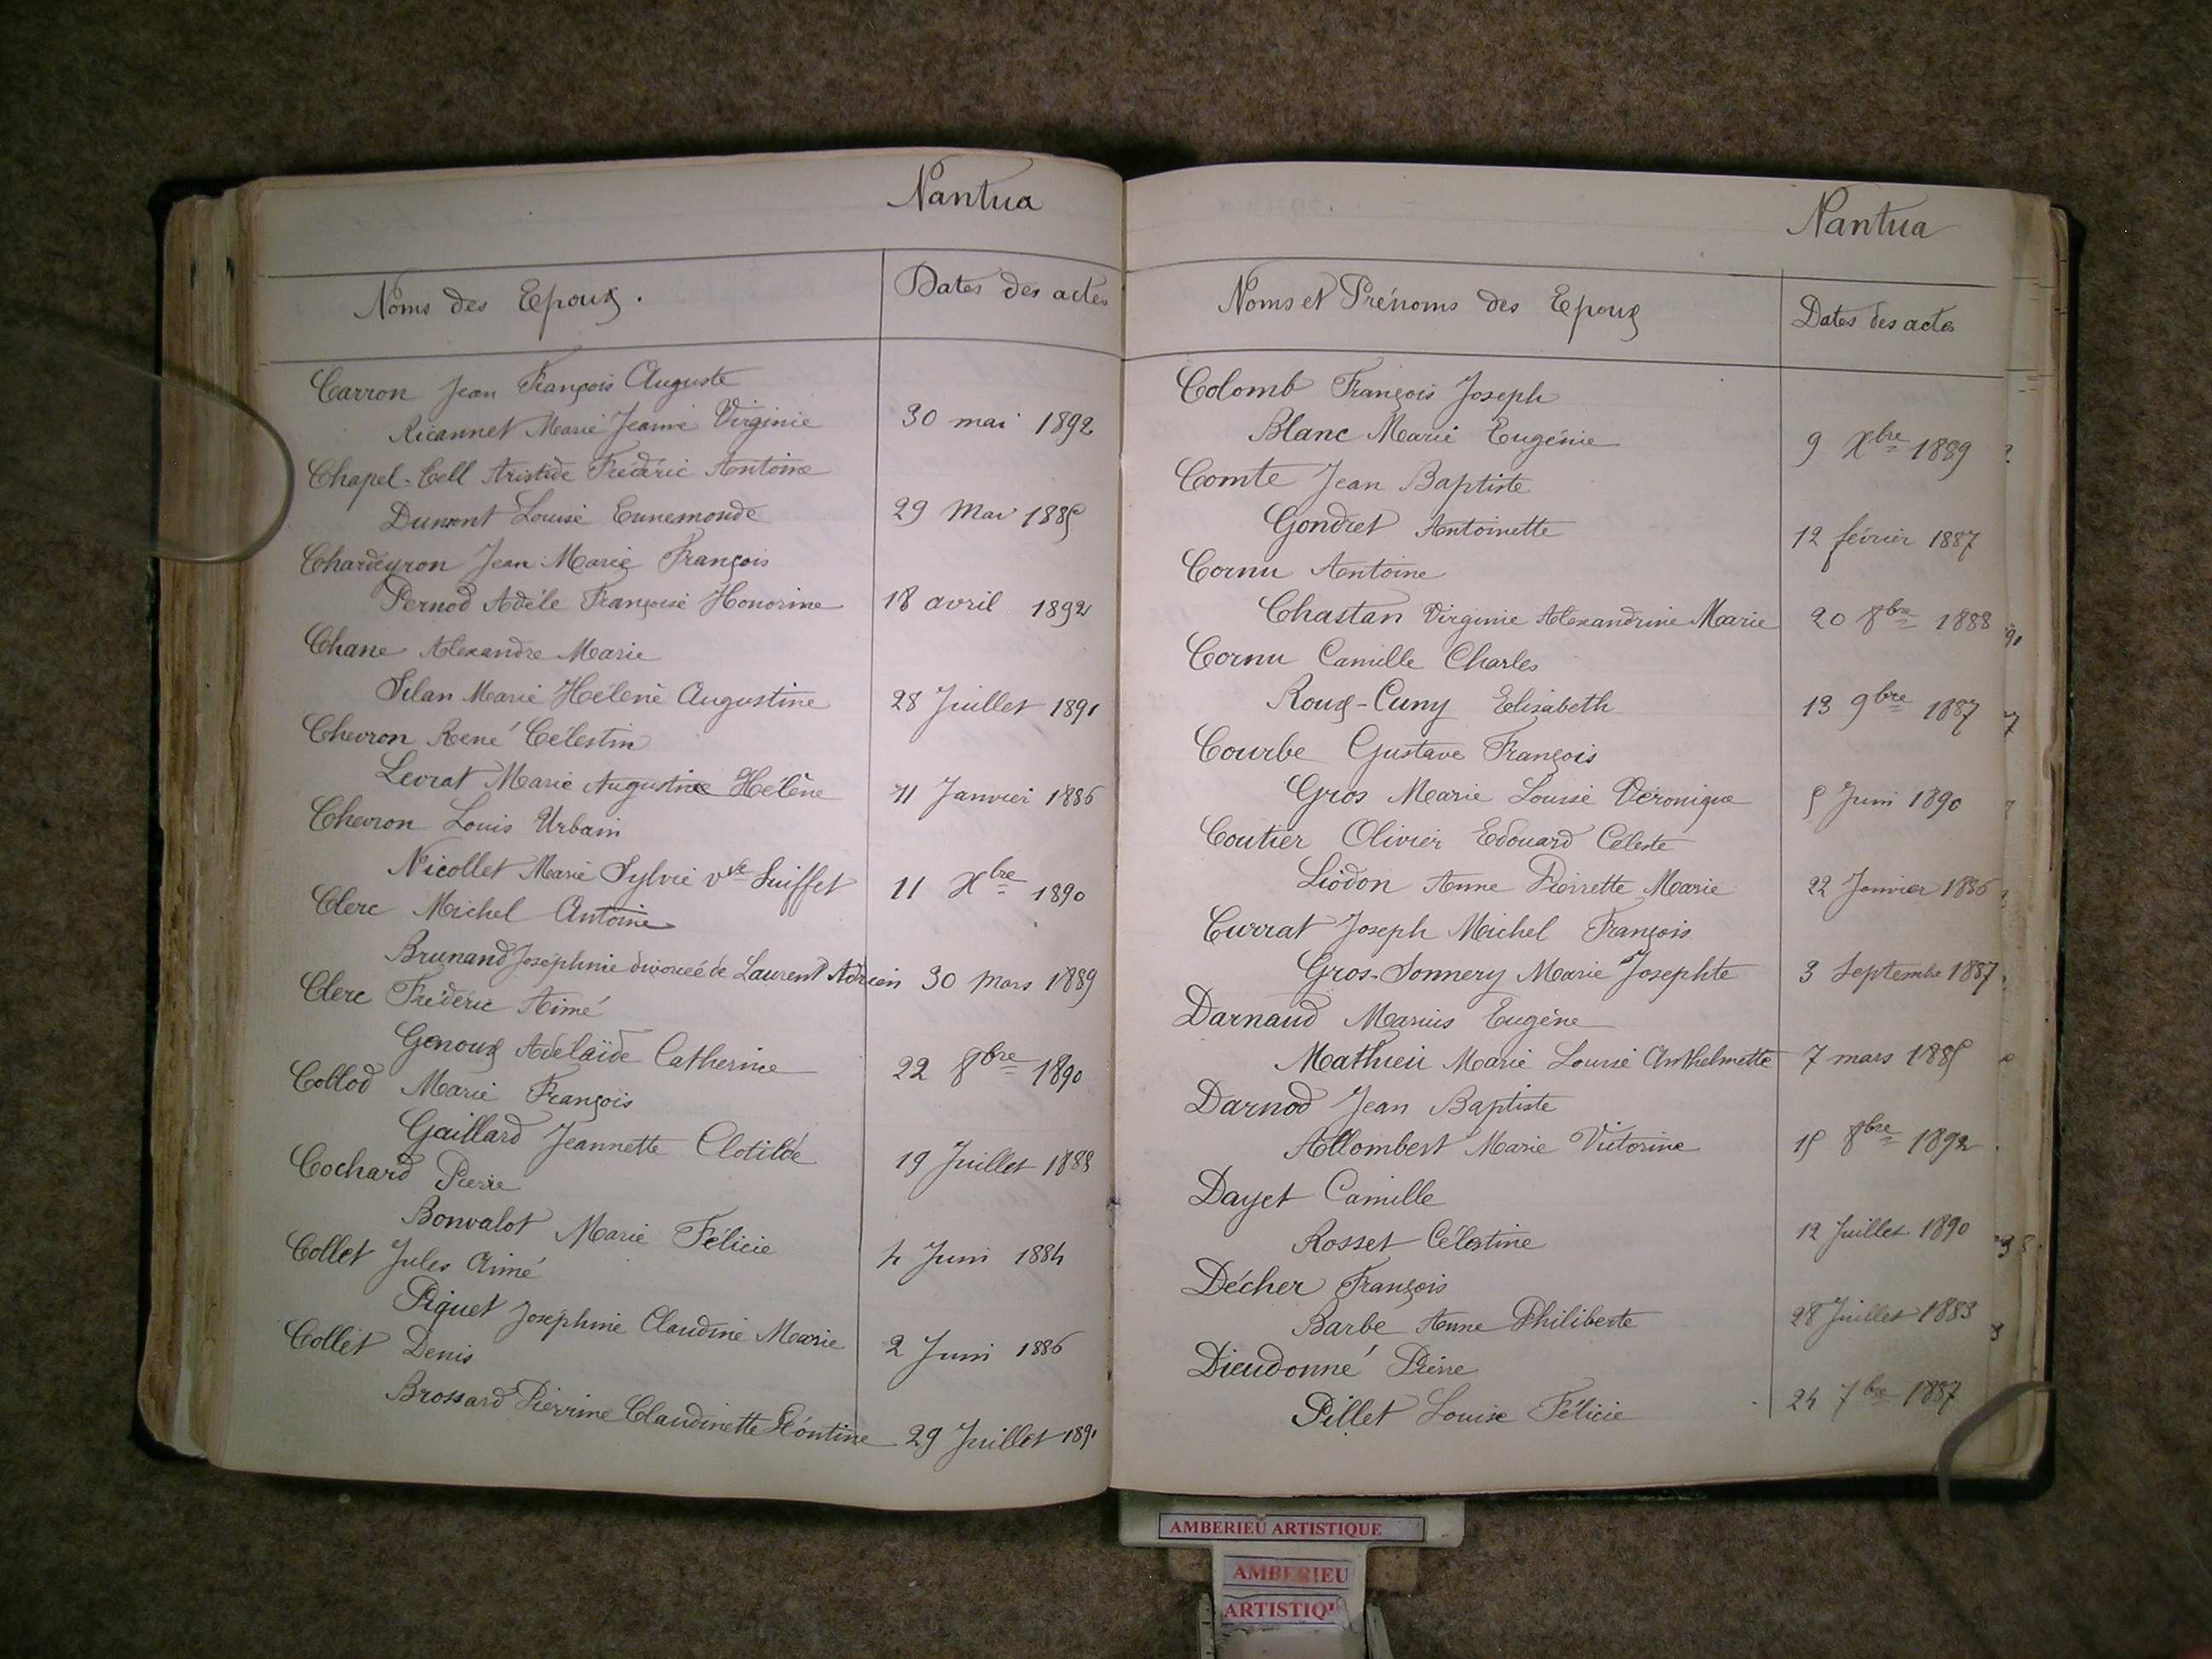 Nantua
Noms des Epoux.
Dates des actes
Carron Jean François Auguste
Ricannet Marie Jeanne Virginie 30 mai 1892
Chapel-Cell Aristide Frédéric Antoine
Dumont Louise Ennemonde 29 Mai 1885
Chardeyron Jean Marie François
Pernod Adèle Françoise Honorine 18 avril 1892
Chane Alexandre Marie
Silan Marie Hélène Augustine 28 Juillet 1891
Chevron René Célestin
Levrat Marie Augustine Hélène 11 Janvier 1886
Chevron Louis Urbain
Nicollet Marie Sylvie vve Suiffet 11 Xbre 1890
Clerc Michel Antoine
Brunand Joséphine divorcée de Laurent Adrien 30 Mars 1889
Clerc Frédéric Aimé
Genoux Adélaïde Catherine 22 8bre 1890
Collod Marie François
Gaillard Jeannette Clotilde 19 Juillet 1888
Cochard Pierre
Bonvalot Marie Félicie 4 Juin 1884
Collet Jules Aimé
Piquet Joséphine Claudine Marie 2 Juin 1886
Collet Denis
Brossard Pierrine Claudinette Léontine 29 Juillet 1891
Nantua
Noms et Prénoms des Epoux
Dates des actes
Colomb François Joseph
Blanc Marie Eugénie 9 Xbre 1889
Comte Jean Baptiste
Gondret Antoinette 12 février 1887
Cornu Antoine
Chastan Virginie Alexandrine Marie 20 8bre 1888
Cornu Camille Charles
Roux-Cuny Elisabeth 13 9bre 1887
Courbe Gustave François
Gros Marie Louise Véronique 5 Juin 1890
Coutier Olivier Edouard Céleste
Liodon Anne Pierrette Marie 22 Janvier 1886
Currat Joseph Michel François
Gros-Sonnery Marie Josephte 3 Septembre 1887
Darnaud Marius Eugène
Mathieu Marie Louise Anthelmette 7 mars 1885
Darnod Jean Baptiste
Allombert Marie Victorine 15 8bre 1892
Dayet Camille
Rosset Célestine 12 Juillet 1890
Décher François
Barbe Anne Philiberte 28 Juillet 1883
Dieudonné Pierre
Pillet Louise Félicie 24 7bre 1887
AMBERIEU ARTISTIQUE
AMBERIEU
ARTISTIQU